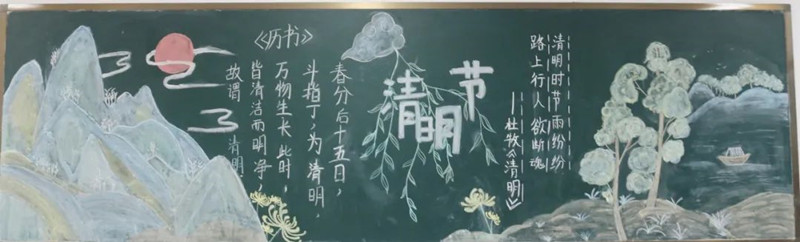 《历书》
春分后十五日，
斗指丁，为清明，
万物生长此时，
皆清洁而明净，
故谓清明
清明节
清明时节雨纷纷
路上行人欲断魂
——杜牧《清明》